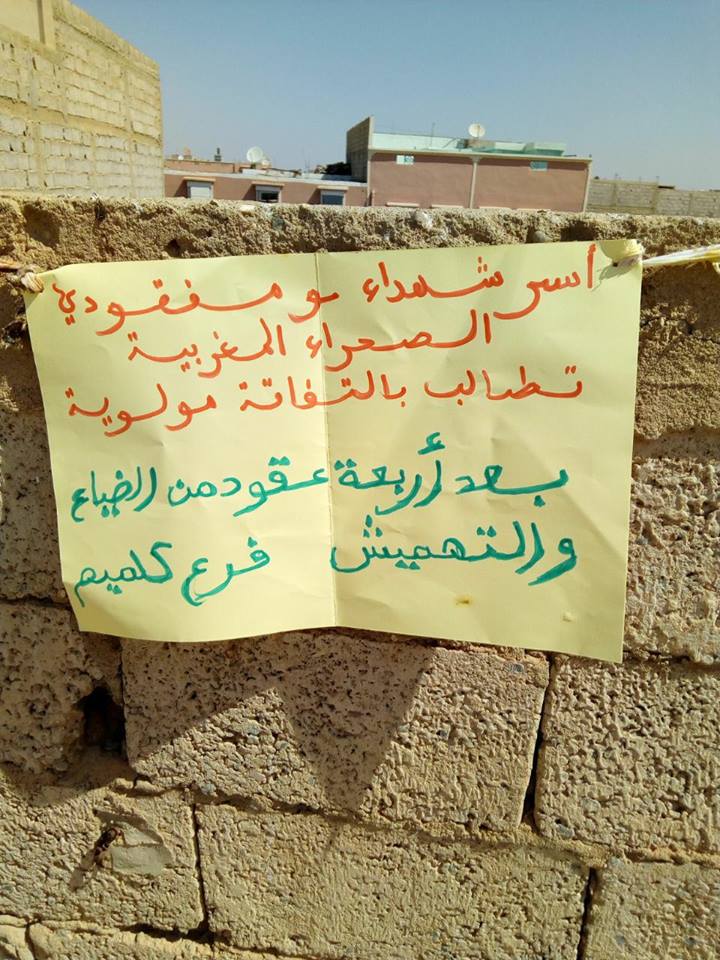 أسر شهداء و مفقودي
الصحراء المغربية
تطالب بالتفاتة مولوية
بعد أربعة عقود من الضياع
والتهميش فرع كلميم